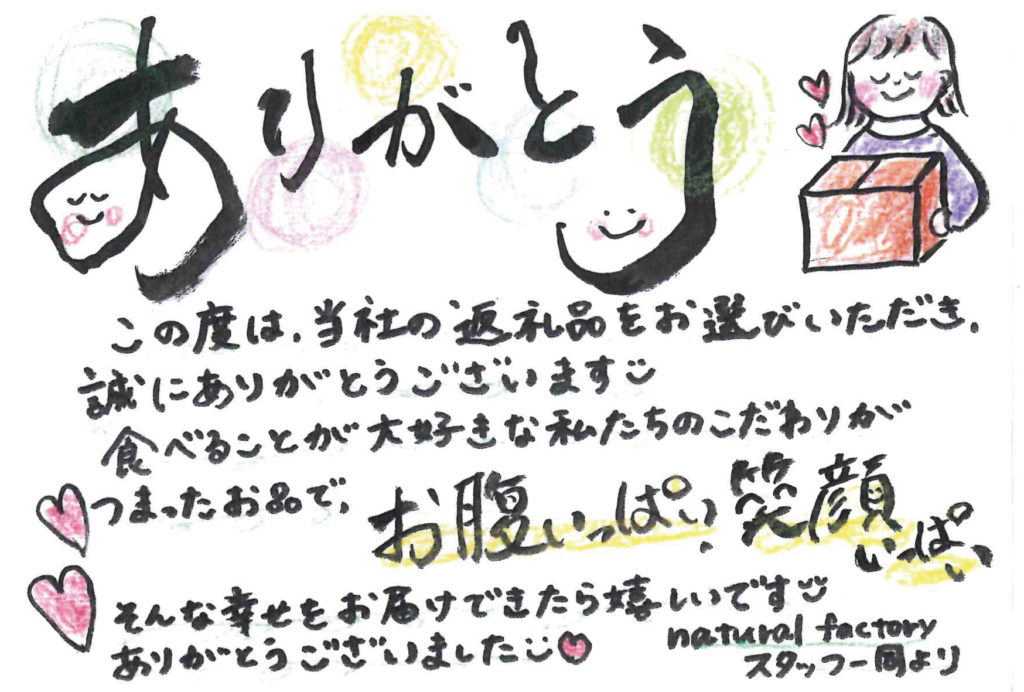 ありがとう
この度は、当社の返礼品をお選びいただき、
誠にありがとうございます
食べることが大好きな私たちのこだわりが
つまったお品で、
お腹いっぱい、笑顔いっぱい、
そんな幸せをお届けできたら嬉しいです
ありがとうございました
natural factory
スタッフ一同より